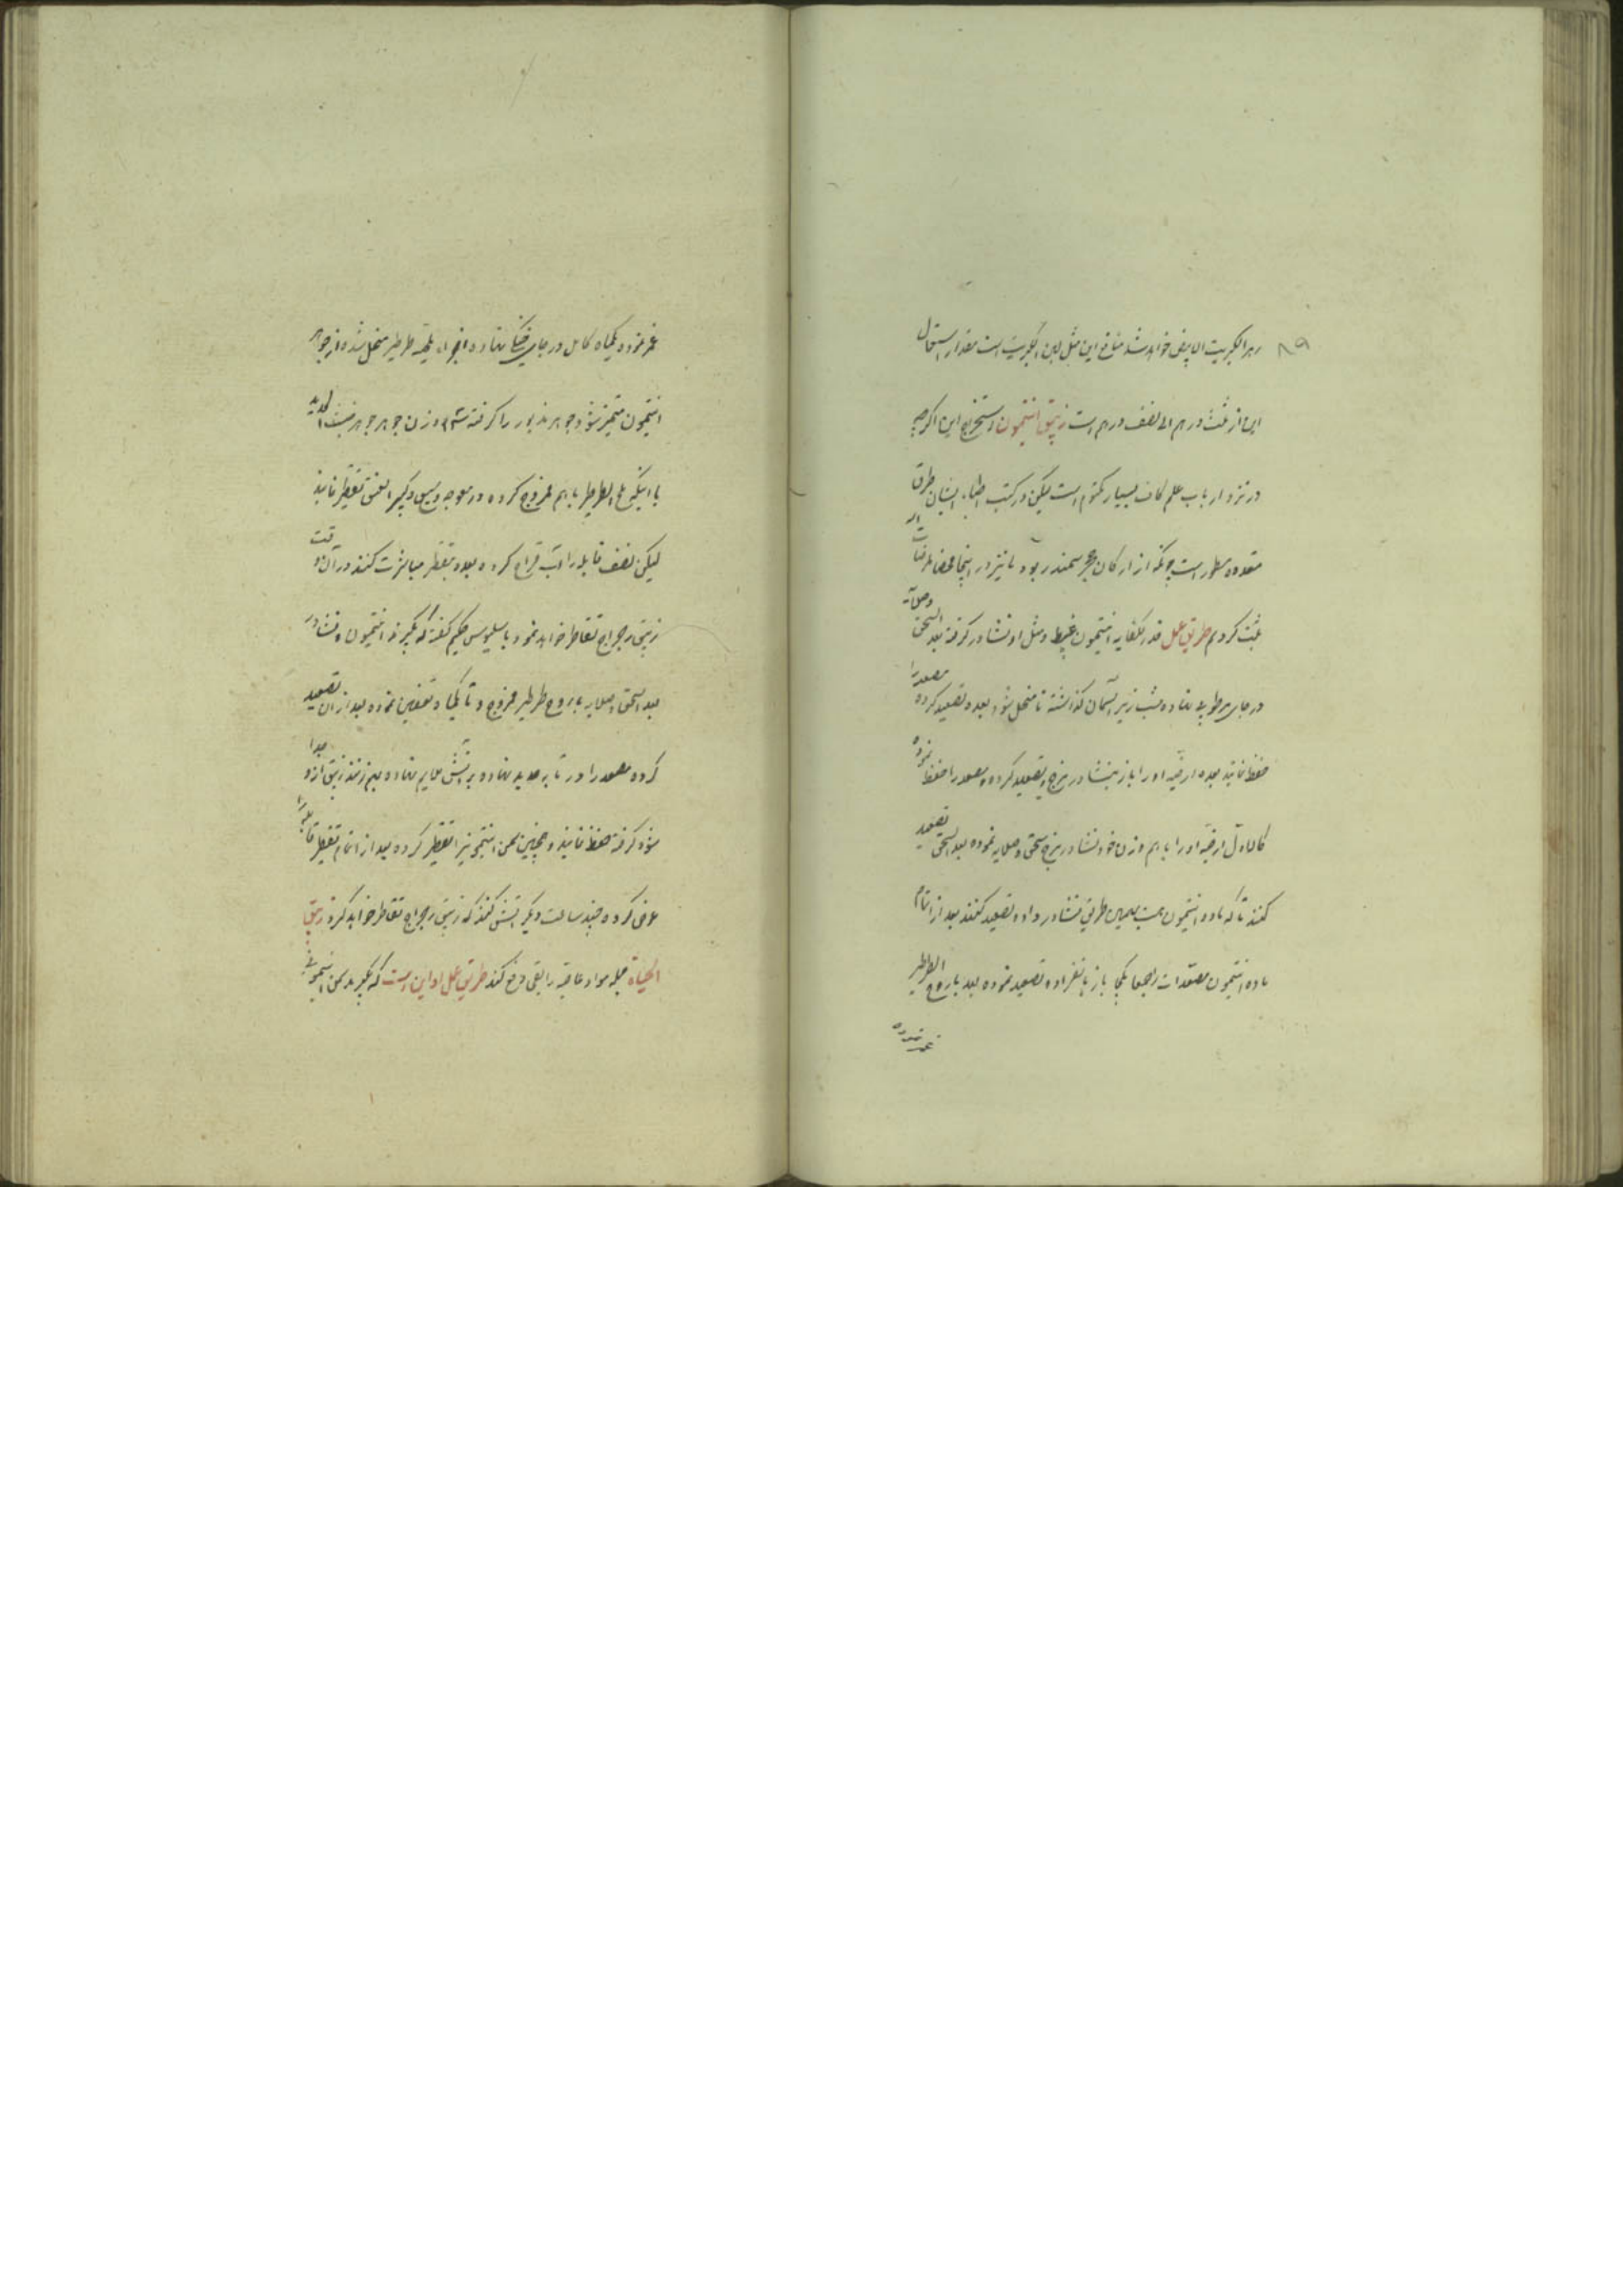 ۸۹
زهر الکبریت الابیض خواهد شد منافع این مثل لبن الکبریت است مقدار استعمال
این از ثلث درهم الی نصف درهم است زیبق انتیمون استخراج این اگرچه
در نزد ارباب علم کاف بسیار مکتوم است لیکن در کتب اطباء ایشان طرق
متعدده مسطور است چونکه از ارکان حجر سمندر بود ما نیز در اینجا محض
ثبت کردیم طریق عمل قدر یکفایه انتیمون غبیط و مثل او نشادر گرفته بعد السحق وصلایه
در جای رطوبه نهاده شب زیر آسمان گذاشته تا منحل شود بعده تصعید کرده مصعد را
حفظ نمایند بعده ارضیه او را باز بنشادر مزج و تصعید کرده و مصعد را حفظ نموده
کالاول ارضیه او را با هم وزن خود نشادر مزج سحق وصلایه نموده بعد السحق تصعید
کنند تا که ماده انتیمون بست بهمین طریق نشادر داده تصعید کنند بعد از اتمام
ماده انتیمون مصعدات را جمعا یکجا باز بانفراده تصعید نموده بعد با روح الطرطیر
غمر نموده
غمر نموده یکماه کامل در جای نهاده اجزاء ملحیه طرطیر منحل شده از جوهر
انتیمون متمیز شود جوهر مذبور را گرفته وزن جوهر جوهر خبث الحدید
با اینکه ملح الطرطیر باهم ممزوج کرده در معوجه وسیع و کبیر العنق تقطیر نمایند
لیکن نصف قابله را آب قراح کرده بعده بتقطیر مباشرت کنند در آن وقت
زیبق رجراج تقاطر خواهد نمود باسیلیوس حکیم گفته که بگیرند انتیمون و نشادر
بعد السحق وصلایه با روح طرطیر ممزوج و تا یکماه تعفین نموده بعد از آن تصعید
کرده مصعد را در تابه حدید نهاده بر آتش ملایم نهاده بهم زنند زیبق از او جدا
شود گرفته حفظ نمایند و همچنین سمن انتیمون نیز تقطیر کرده بعد از اتمام تقطیر قابله را
عوض کرده چند ساعت دیگر آتش کنند که زیبق رجراج تقاطر خواهد کرد زیبق
الحیاة جمله مواد عاصیه را بقی دفع کند طریق عمل او این است که بگیرند سمن انتیمون